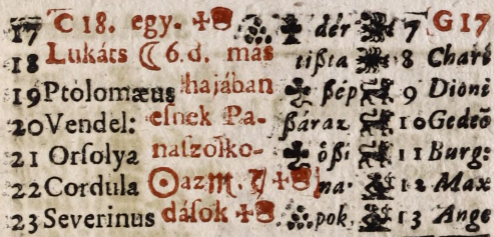 17 C 18. egy. dér 7 G 17
18 Lukáts ☾ 6. d. mas tißta 8 Chari
19 Ptolomæus hajában ßép 9 Dioni
20 Vendel: esnek Pa- ßáraz 10 Gedeõ
21 Orsolya naszolko- ößi 11 Burg:
22 Cordula ☉ az ♏. na. 12 Max
23 Severinus dások pok. 13 Ange